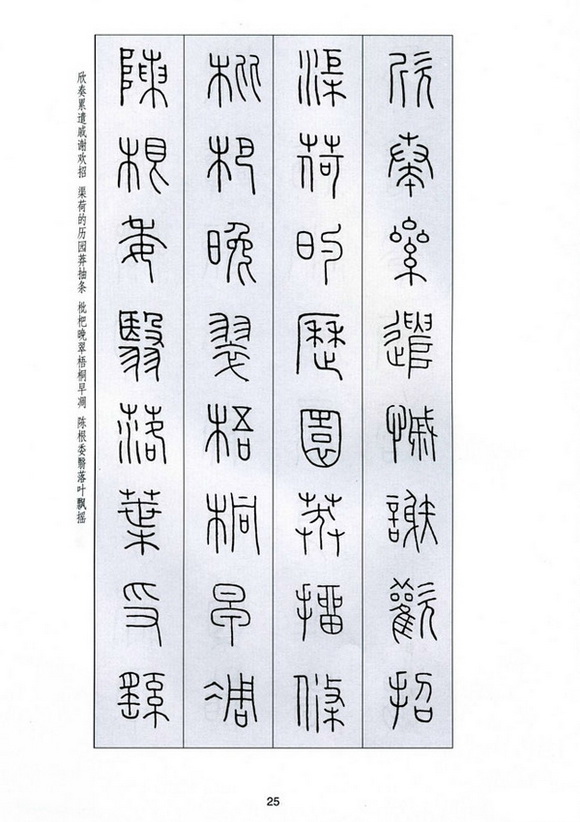 欣奏絫遣慽謝歡招
渠荷的歷園莽㩅條
枇杷晚翠梧桐早凋
陳根委翳落葉
欣奏累遣戚谢欢招 渠荷的历园莽抽条 枇杷晚翠梧桐早凋 陈根委翳落叶飘摇
25